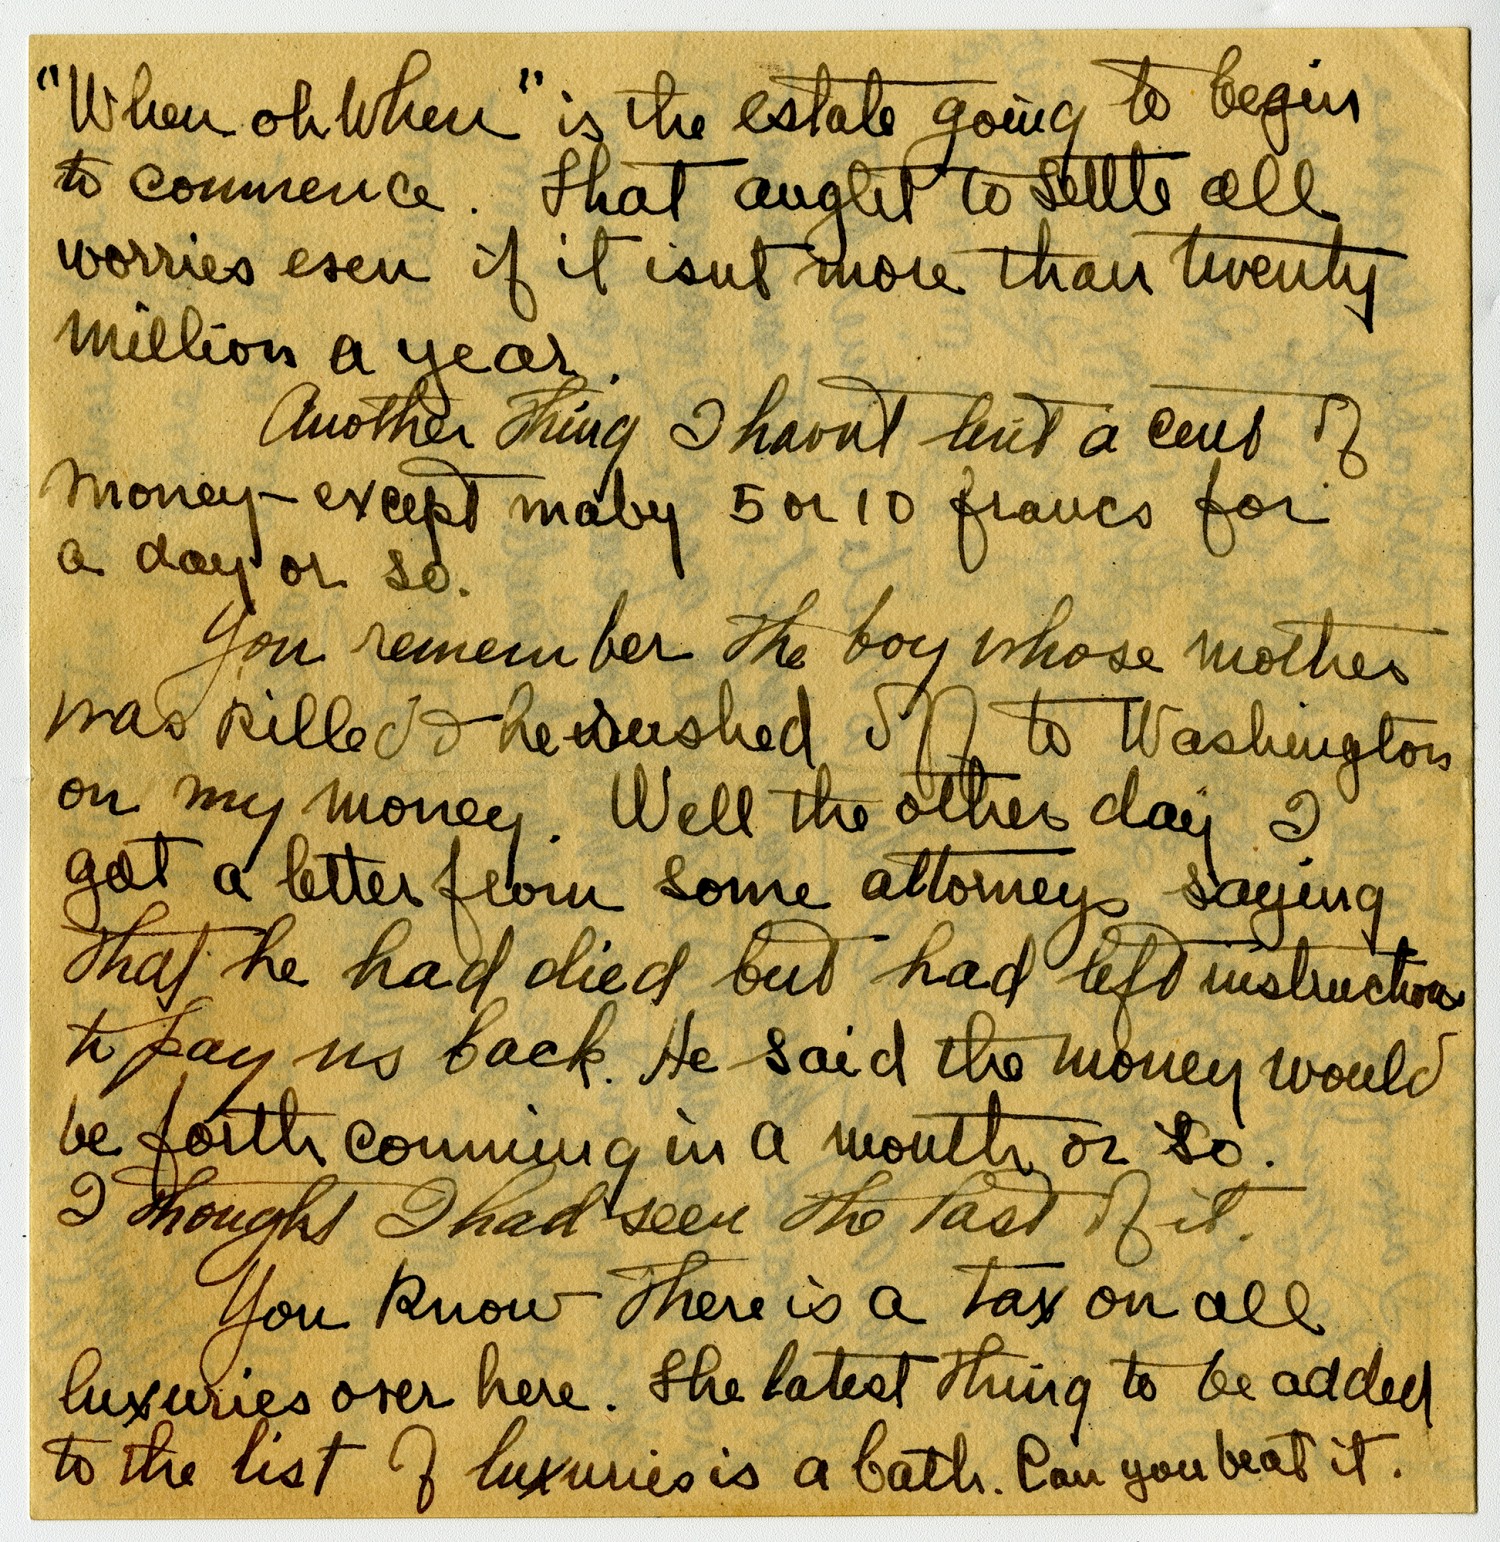 "When oh When" is the estate going to begin
to commence. That aught to settle all
worries even if it isnt more than twenty
million a year.
Another thing I havnt lent a cent of
money - except maby 5 or 10 francs for
a day or so.
You remember the boy whose mother
was killed & he rushed off to Washington
on my money. Well the other day I
got a letter from some attorneys saying
that he had died but had left instructions
to pay us back. He said the money would
be forth comming in a month or so.
I thought I had seen the last of it.
You know there is a tax on all
luxuries over here. The latest thing to be added
to the list of luxuries is a bath. Can you beat it.